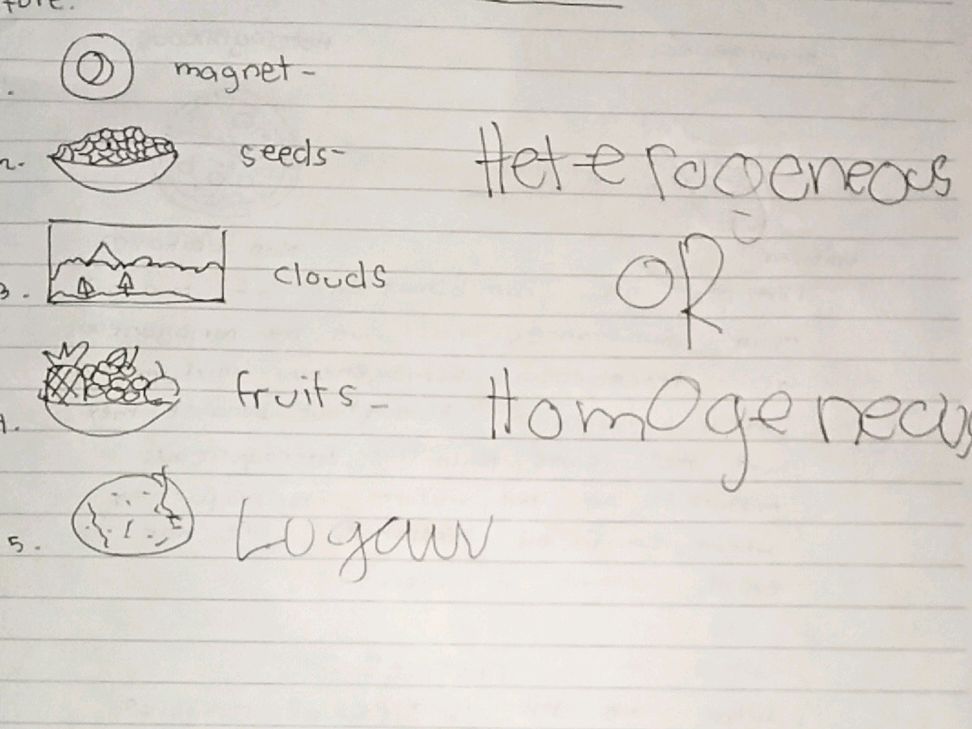 ture.
magnet-
2. seeds-
Heterogeneous
OR
3. clouds
4. fruits-
Homogeneous
5. Lugaw